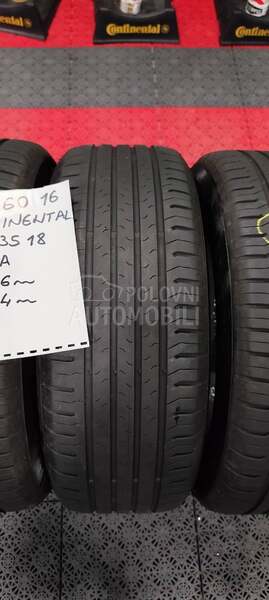 Continental
Continental
60/16
INENTAL
3518
A
6~
4~
POLOVNI
AUTOMOBILI